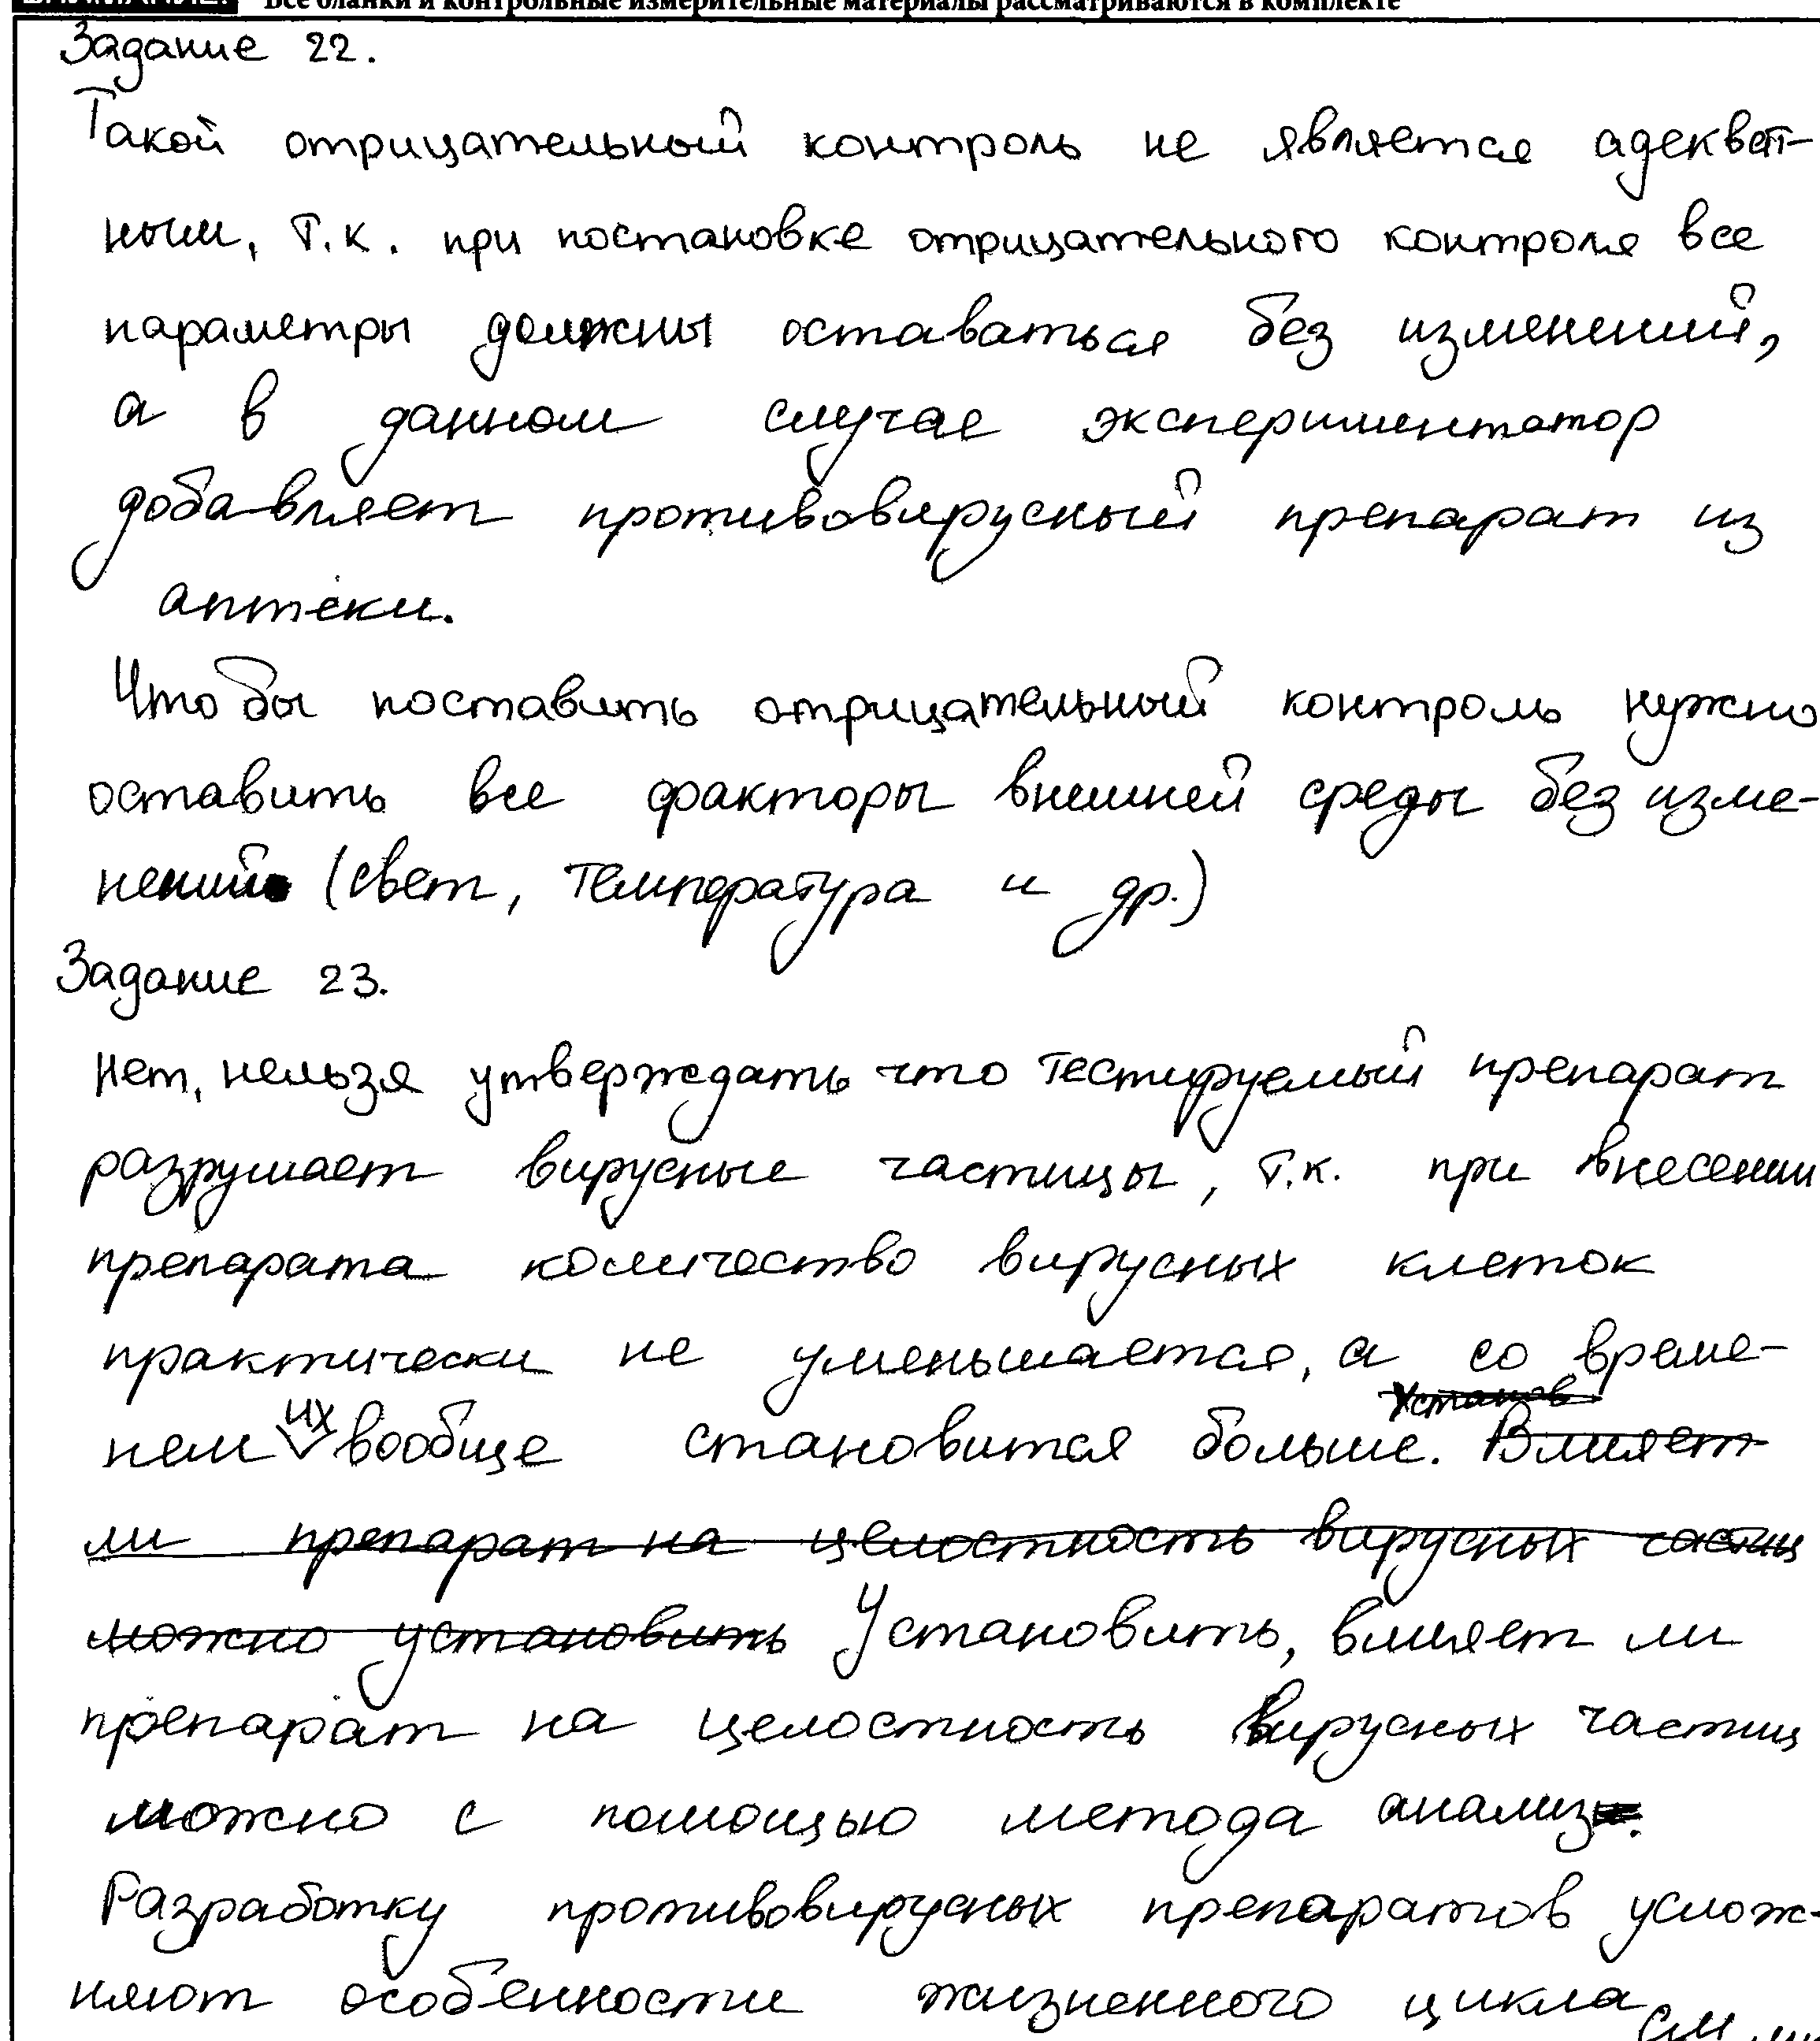 Все бланки и контрольные измерительные материалы рассматриваются в комплекте
Задание 22.
Такой отрицательный контроль не является адекват-
ным, т.к. при постановке отрицательного контроля все
параметры должны оставаться без изменений,
а в данном случае экспериментатор
добавляет противовирусный препарат из
аптеки.
Чтобы поставить отрицательный контроль нужно
оставить все факторы внешней среды без изме-
нений (свет, температура и др.)
Задание 23.
Нет, нельзя утверждать что тестируемый препарат
разрушает вирусные частицы, т.к. при внесении
препарата количество вирусных клеток
практически не уменьшается, а со време-
нем их вообще становится больше. Установ Влияет
ли препарат на целостность вирусных частиц
можно установить Установить, влияет ли
препарат на целостность вирусных частиц
можно с помощью метода анализ.
Разработку противовирусных препаратов услож-
няют особенности жизненного цикла
см